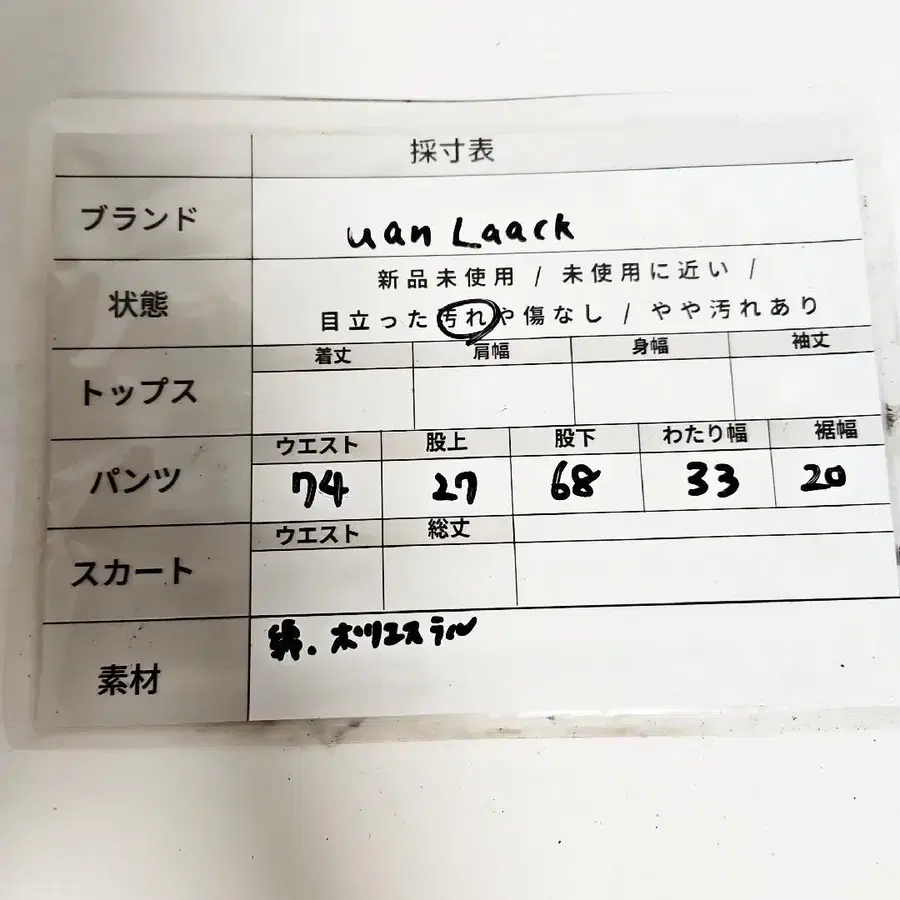 採寸表
ブランド uan Laack
状態 新品未使用 / 未使用に近い /
目立った汚れや傷なし / やや汚れあり
トップス 着丈 肩幅 身幅 袖丈
パンツ ウエスト 股上 股下 わたり幅 裾幅
74 27 68 33 20
スカート ウエスト 総丈
素材 綿. ポリエステル